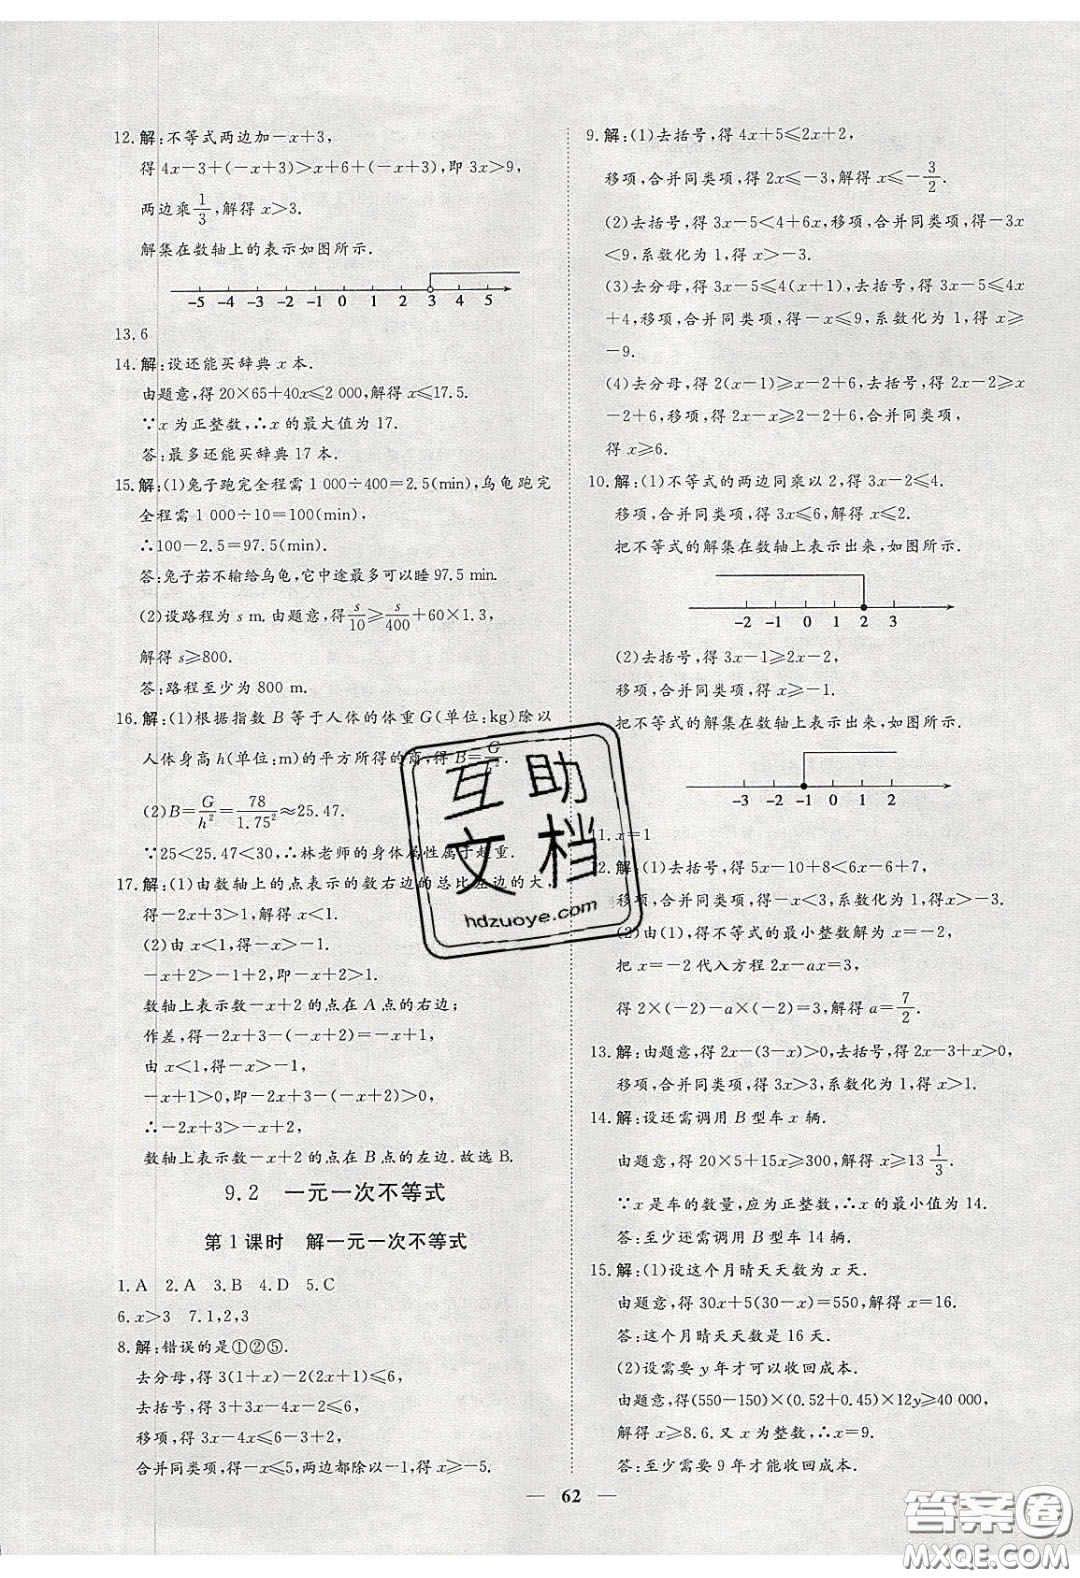 12. 解:不等式两边加－x＋3，
得 4x－3＋(－x＋3)＞x＋6＋(－x＋3)，即 3x＞9，
两边乘1/3，解得 x＞3.
解集在数轴上的表示如图所示.
-5 -4 -3 -2 -1 0 1 2 3 4 5
13. 6
14. 解:设还能买辞典 x 本.
由题意，得 20×65＋40x≤2 000，解得 x≤17.5.
∵x 为正整数，∴x 的最大值为 17.
答:最多还能买辞典 17 本.
15. 解:(1)兔子跑完全程需 1 000÷400＝2.5(min)，乌龟跑完
全程需 1 000÷10＝100(min)，
∴100－2.5＝97.5(min).
答:兔子若不输给乌龟，它中途最多可以睡 97.5 min.
(2)设路程为 s m. 由题意，得 s/10≥s/400＋60×1.3，
解得 s≥800.
答:路程至少为 800 m.
16. 解:(1)根据指数 B 等于人体的体重 G(单位:kg)除以
人体身高 h(单位:m)的平方所得的商，得 B＝G/h².
(2)B＝G/h²＝78/1.75²≈25.47.
∵25＜25.47＜30，∴林老师的身体属性属于超重.
17. 解:(1)由数轴上的点表示的数右边的总比左边的大，
得－2x＋3＞1，解得 x＜1.
(2)由 x＜1，得－x＞－1.
－x＋2＞－1＋2，即－x＋2＞1.
数轴上表示数－x＋2 的点在 A 点的右边；
作差，得－2x＋3－(－x＋2)＝－x＋1，
由 x＜1，得－x＞－1，
－x＋1＞0，
∴－2x＋3＞－x＋2，
数轴上表示数－x＋2 的点在 B 点的左边. 故选 B.
9.2 一元一次不等式
第 1 课时 解一元一次不等式
1. A 2. A 3. B 4. D 5. C
6. x＞3 7. 1,2,3
8. 解:错误的是①②⑤.
去分母，得 3(1＋x)－2(2x＋1)≤6，
去括号，得 3＋3x－4x－2≤6，
移项，得 3x－4x≤6－3＋2，
合并同类项，得－x≤5，两边都除以－1，得 x≥－5.
9. 解:(1)去括号，得 4x＋5≤2x＋2，
移项，合并同类项，得 2x≤－3，解得 x≤－3/2.
(2)去括号，得 3x－5＜4＋6x，移项，合并同类项，得－3x
＜9，系数化为 1，得 x＞－3.
(3)去分母，得 3x－5≤4(x＋1)，去括号，得 3x－5≤4x
＋4，移项，合并同类项，得－x≤9，系数化为 1，得 x≥
－9.
(4)去分母，得 2(x－1)≥x－2＋6，去括号，得 2x－2≥x
－2＋6，移项，得 2x－x≥2－2＋6，合并同类项，
得 x≥6.
10. 解:(1)不等式的两边同乘以 2，得 3x－2≤4.
移项，合并同类项，得 3x≤6，解得 x≤2.
把不等式的解集在数轴上表示出来，如图所示.
-2 -1 0 1 2 3
(2)去括号，得 3x－1≥2x－2，
移项，合并同类项，得 x≥－1.
把不等式的解集在数轴上表示出来，如图所示.
-3 -2 -1 0 1 2
11. x＝1
12. 解:(1)去括号，得 5x－10＋8＜6x－6＋7，
移项，合并同类项，得－x＜3，解得 x＞－3.
(2)由(1)，得不等式的最小整数解为 x＝－2，
把 x＝－2 代入方程 2x－ax＝3，
得 2×(－2)－a×(－2)＝3，解得 a＝7/2.
13. 解:由题意，得 2x－(3－x)＞0，去括号，得 2x－3＋x＞0，
移项，合并同类项，得 3x＞3，系数化为 1，得 x＞1.
14. 解:设还需调用 B 型车 x 辆.
由题意，得 20×5＋15x≥300，解得 x≥13 1/3.
∵x 是车的数量，应为正整数，∴x 的最小值为 14.
答:至少还需调用 B 型车 14 辆.
15. 解:(1)设这个月晴天天数为 x 天.
由题意，得 30x＋5(30－x)＝550，解得 x＝16.
答:这个月晴天天数是 16 天.
(2)设需要 y 年才可以收回成本.
由题意，得(550－150)×(0.52＋0.45)×12y≥40 000，
解得 x≥8.6. 又 x 为整数，∴x＝9.
答:至少需要 9 年才能收回成本.
— 62 —
互助
文档
hdzuoye.com
答案圈
MXQE.COM